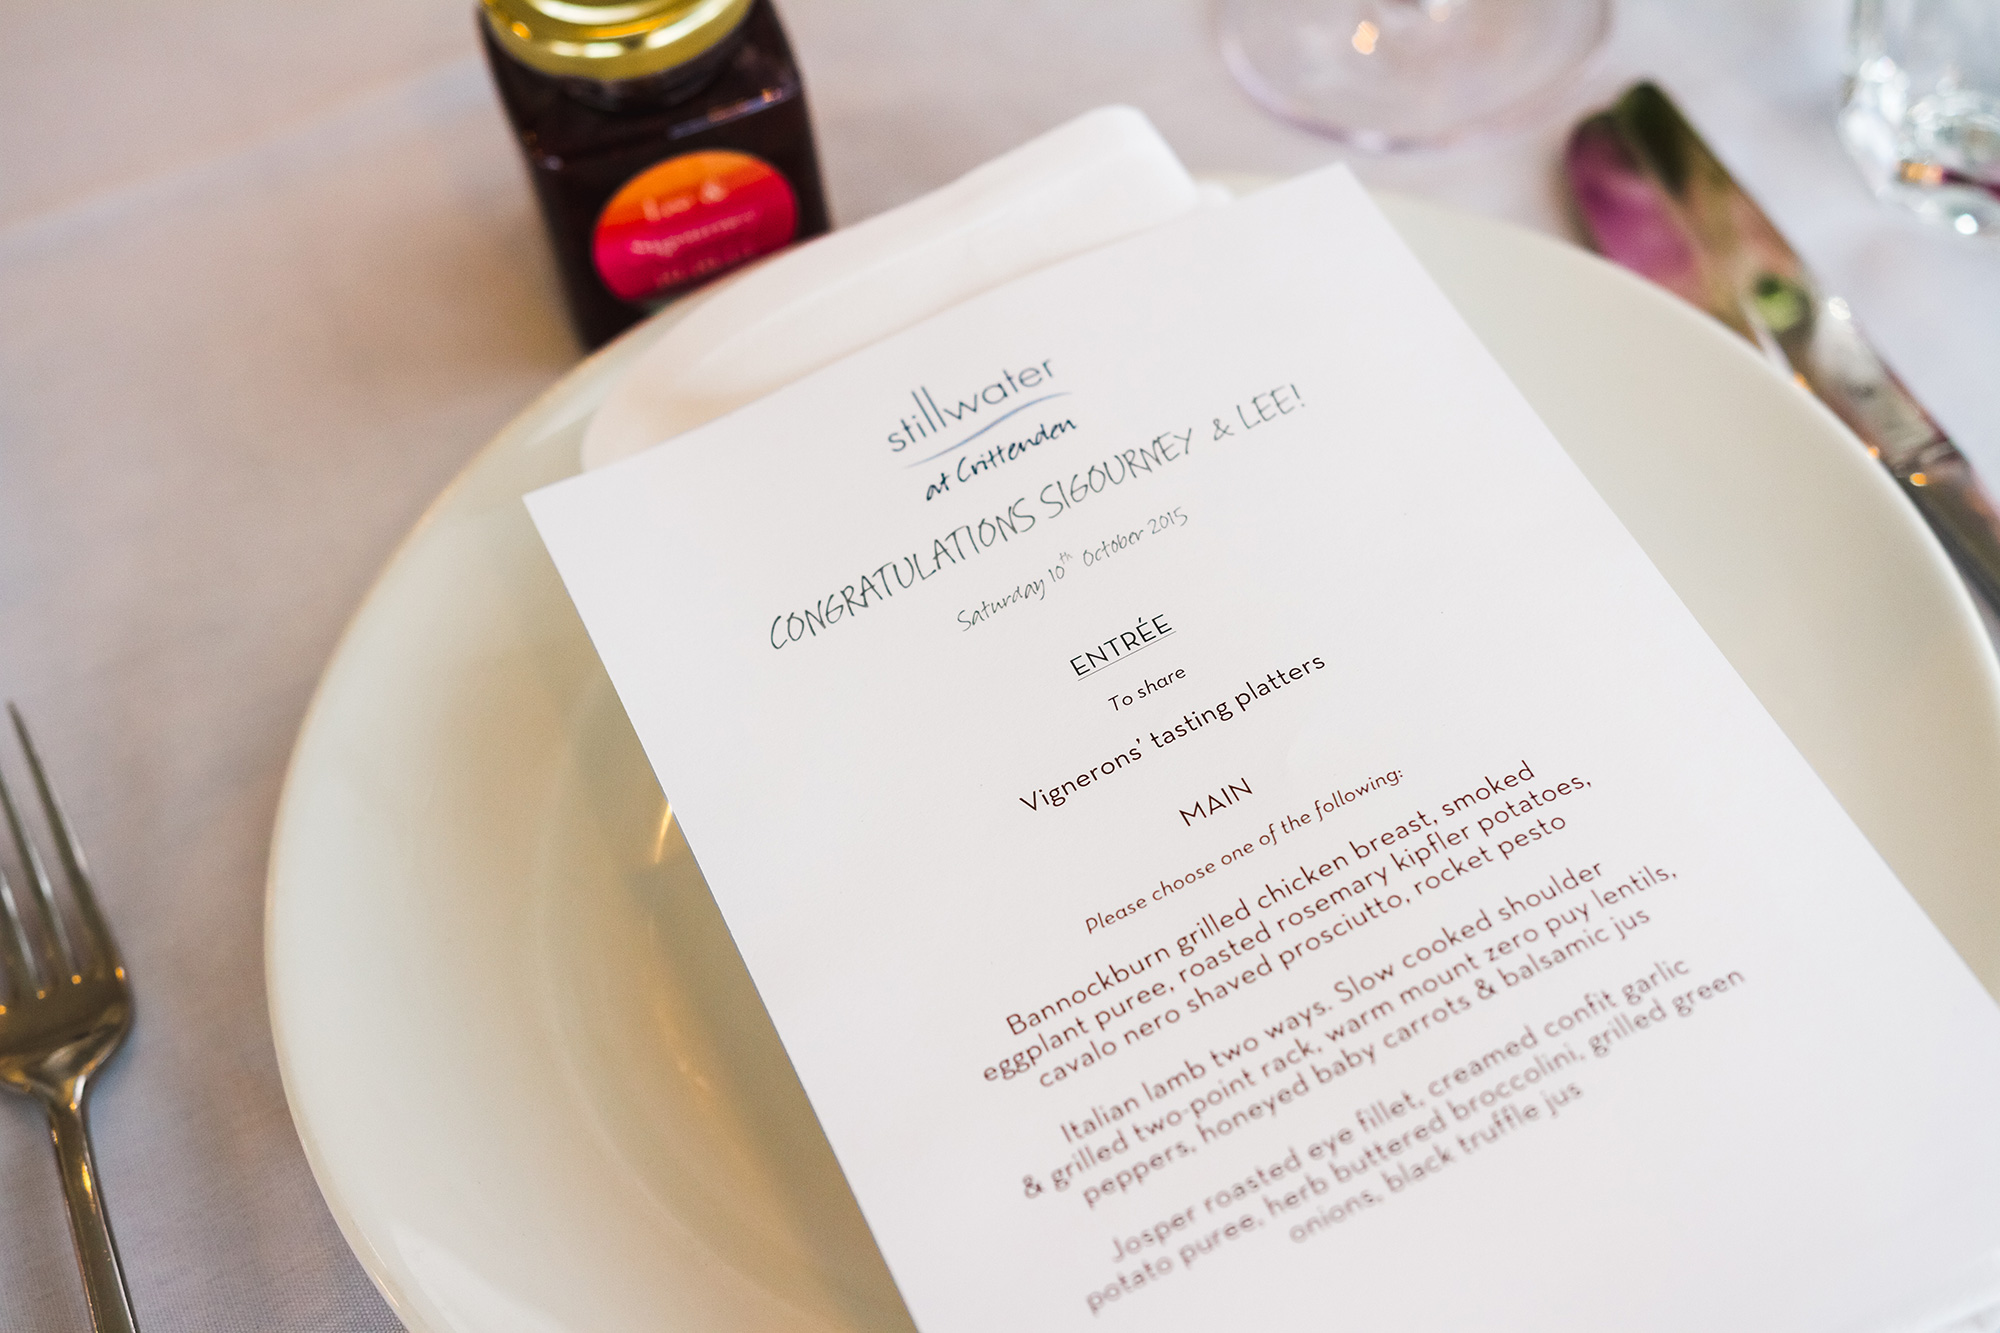 Lee &
Sigourney
stillwater
at Crittenden
CONGRATULATIONS SIGOURNEY & LEE!
Saturday 10th October 2015
ENTRÉE
To share
Vignerons' tasting platters
MAIN
Please choose one of the following:
Bannockburn grilled chicken breast, smoked
eggplant puree, roasted rosemary kipfler potatoes,
cavalo nero shaved prosciutto, rocket pesto
Italian lamb two ways. Slow cooked shoulder
& grilled two-point rack, warm mount zero puy lentils,
peppers, honeyed baby carrots & balsamic jus
Josper roasted eye fillet, creamed confit garlic
potato puree, herb buttered broccolini, grilled green
onions, black truffle jus